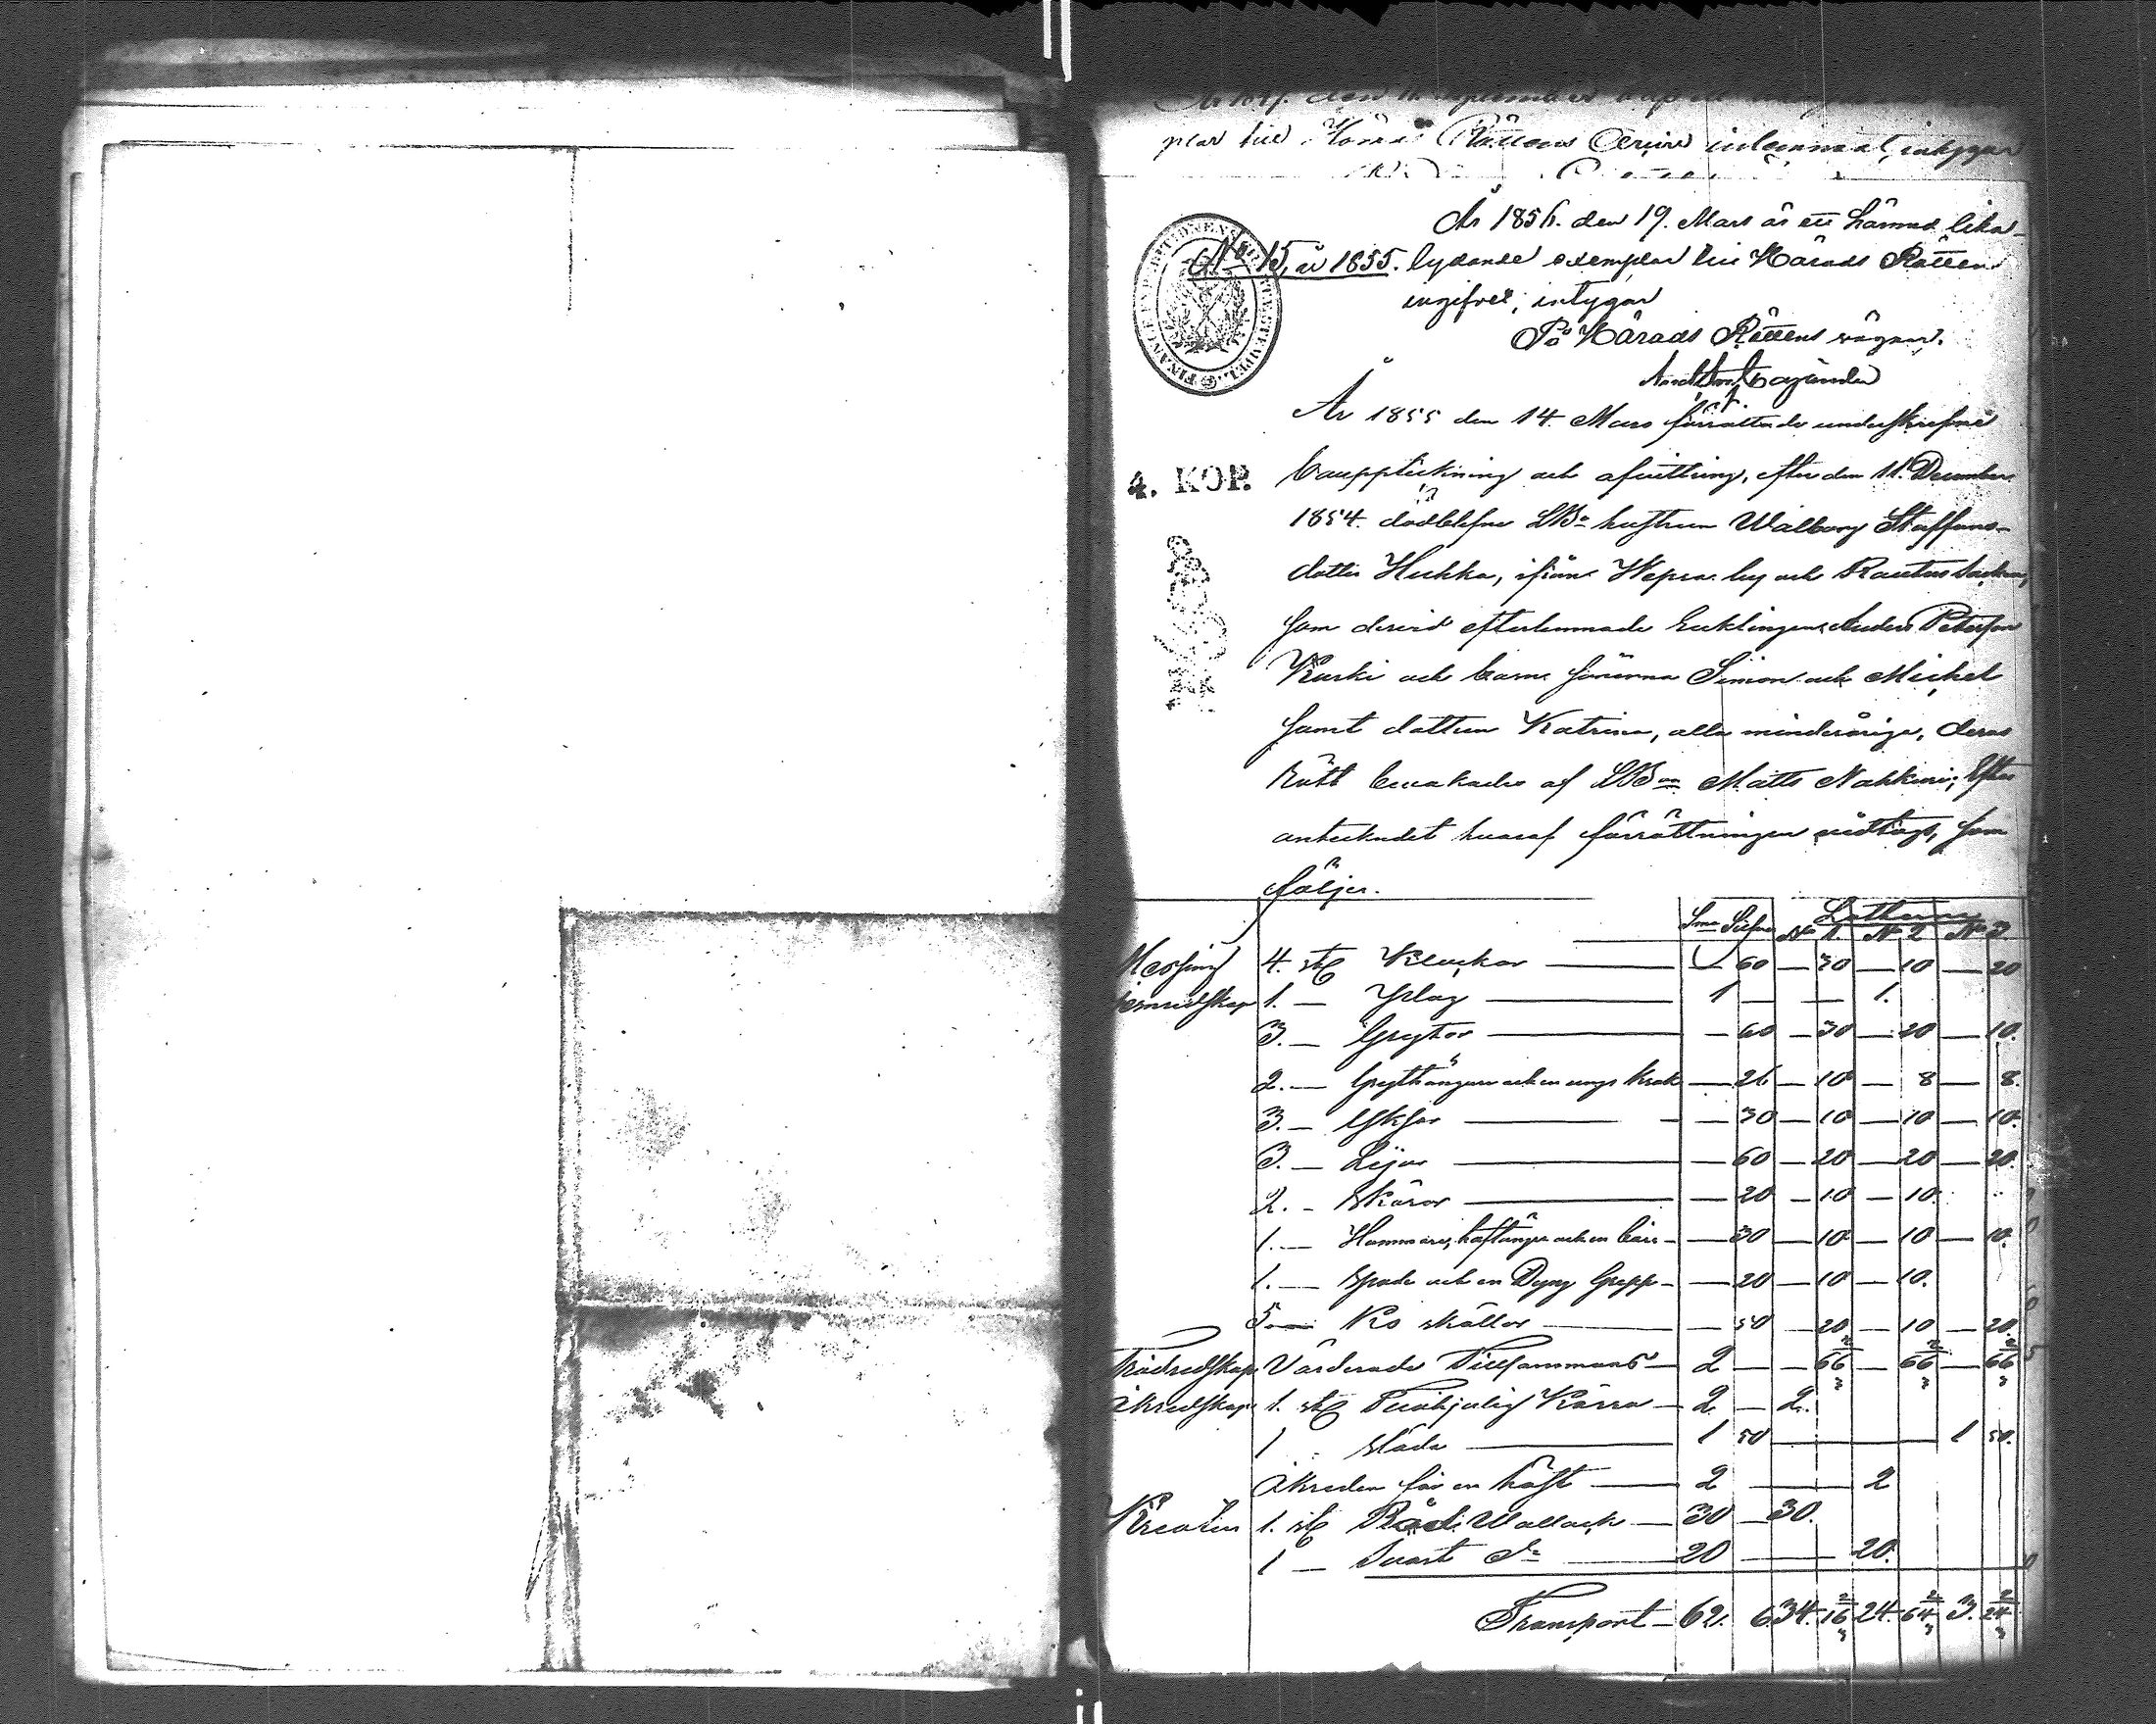 plar till Härads Rättens Archiv inlemnat, intygar
År 1856. den 19. Mars är ett härmed lika-
No 15, år 1855. lydande exemplar till Härads Rätten
ingifvet, intygar
På Härads Rättens vägnar.
FINANCE EXPEDITIONENS STEMPEL
År 1855 den 14. Mars förrättade underskrefne
4. KOP. bouppteckning och afvittring, efter den 11. December
1854. dödblefne LBde hustrun Walborg Staffans-
dotter Hukka, ifrån Wepsa by och Rautus Sockn,
som dervid efterlemnade Enklingen Anders Peterson
Kurki och barn sönerna Simon och Michel
samt dottren Katrina, alla minderåriga, deras
Rätt bevakades af LBden Matts Nahkuri; Efter
antecknadet hvaraf förrättningen vidtogs, som
följer.
Lotterne
Smr Silfver No 1. No 2 No 3
Messing 4. st Kluckor — 60 — 30 — 10 — 20
Jernredskap 1. — Yslag 1 — — 1.
3. — Grytor — 60 — 30 — 20 — 10.
2. — Grythängare och en ungs krok — 26 — 10 — 8 — 8.
3. — Yksor — 30 — 10 — 10 — 10.
3. — Lijar — 60 — 20 — 20 — 20.
2. — Skäror — 20 — 10 — 10.
1. — Hammare, hoftånge och en bårr — 30 — 10 — 10 — 10.
1. — Spade och en Dyng Grepp — 20 — 10 — 10.
5. — Ko skällor — 50 — 20 — 10 — 20.
Trädredskap Värderade Tillsammans — 2 — — 66 2/3 — 66 2/3 — 66 2/3
Åkredskap 1. st Tvåhjulig Kärra — 2 — 2.
1 Släda — 1 50 — 1 50.
Åkreden för en häst — 2 — 2
Kreatur 1. st Röd Wallack — 30 — 30.
1 — Svart do — 20 — 20.
Transport — 62. 6 34. 16 2/3 24. 64 2/3 3. 24 2/3